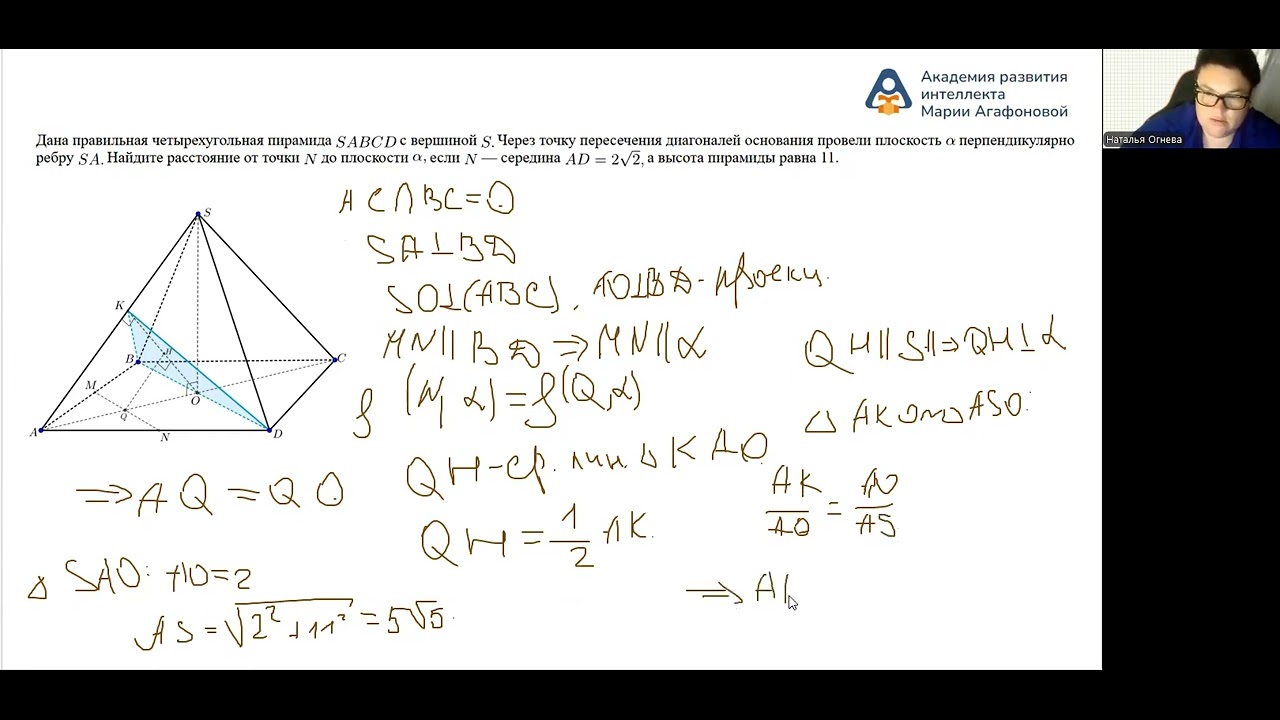 Академия развития
интеллекта
Марии Агафоновой
Наталья Огнева
Дана правильная четырехугольная пирамида SABCD с вершиной S. Через точку пересечения диагоналей основания провели плоскость α перпендикулярно
ребру SA. Найдите расстояние от точки N до плоскости α, если N — середина AD = 2√2, а высота пирамиды равна 11.
S
K
B
H
C
M
O
Q
A
N
D
AC∩BC=O
SA⊥BD
SO⊥(ABC), AO⊥BD-проекц.
MN||BD⇒MN||α
ρ(N, α)=ρ(Q,α)
QH-ср. лин. △KAO.
QH=1/2 AK.
⇒AQ=QO
△SAO: AO=2
AS=√2²+11²=5√5.
QH||S||⇒QH⊥α
△AKO∾ASO.
AK/AO=AO/AS
⇒A